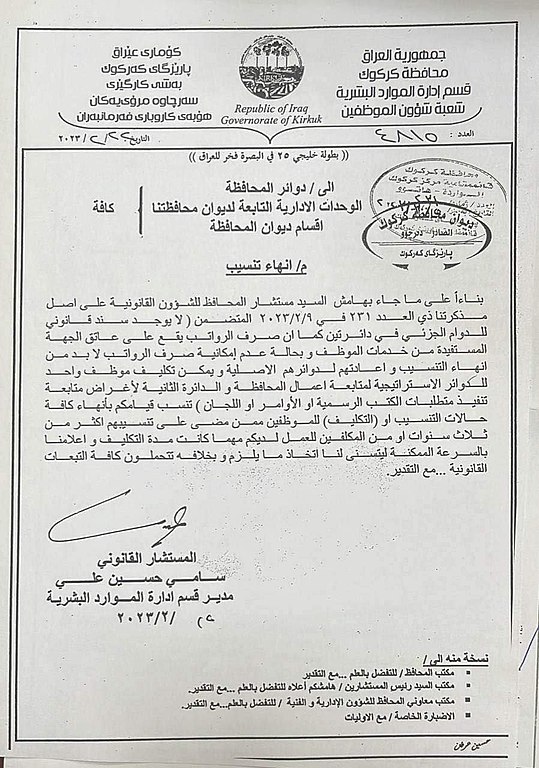 جمهورية العراق
محافظة كركوك
قسم إدارة الموارد البشرية
شعبة شؤون الموظفين
Republic of Iraq
Governorate of Kirkuk
كۆماری عێراق
پارێزگای کەرکوک
بەشی کارگێری
سەرچاوە مرۆییەکان
هۆبەی کاروباری فەرمانبەران
العدد : ٤٨١٥
التاريخ ٢٢/٢/٢٠٢٣
(( بطولة خليجي ٢٥ في البصرة فخر للعراق ))
ديوان محافظة كركوك
پارێزگای کەرکوک
الى / دوائر المحافظة
الوحدات الادارية التابعة لديوان محافظتنا
اقسام ديوان المحافظة
كافة
م/ انهاء تنسيب
بناءاً على ما جاء بهامش السيد مستشار المحافظ للشؤون القانونية على اصل
مذكرتنا ذي العدد ٢٣١ في ٢٠٢٣/٢/٩ المتضمن ( لا يوجد سند قانوني
للدوام الجزئي في دائرتين كما ان صرف الرواتب يقع على عاتق الجهة
المستفيدة من خدمات الموظف و بحالة عدم إمكانية صرف الرواتب لا بد من
انهاء التنسيب و اعادتهم لدوائرهم الاصلية و يمكن تكليف موظف واحد
للدوائر الاستراتيجية لمتابعة اعمال المحافظة و الدائرة الثانية لأغراض متابعة
تنفيذ متطلبات الكتب الرسمية او الأوامر او اللجان ) تنسب قيامكم بأنهاء كافة
حالات التنسيب او (التكليف) للموظفين ممن مضى على تنسيبهم اكثر من
ثلاث سنوات او من المكلفين للعمل لديكم مهما كانت مدة التكليف و اعلامنا
بالسرعة الممكنة ليتسنى لنا اتخاذ ما يلزم و بخلافه تتحملون كافة التبعات
القانونية ...مع التقدير.
المستشار القانوني
سامي حسين علي
مدير قسم ادارة الموارد البشرية
/٢٠٢٣/٢
نسخة منه الى /
مكتب المحافظ / للتفضل بالعلم ...مع التقدير.
مكتب السيد رئيس المستشارين / هامشكم أعلاه للتفضل بالعلم ...مع التقدير.
مكتب معاوني المحافظ للشؤون الإدارية و الفنية / للتفضل بالعلم...مع التقدير.
الاضبارة الخاصة / مع الاوليات